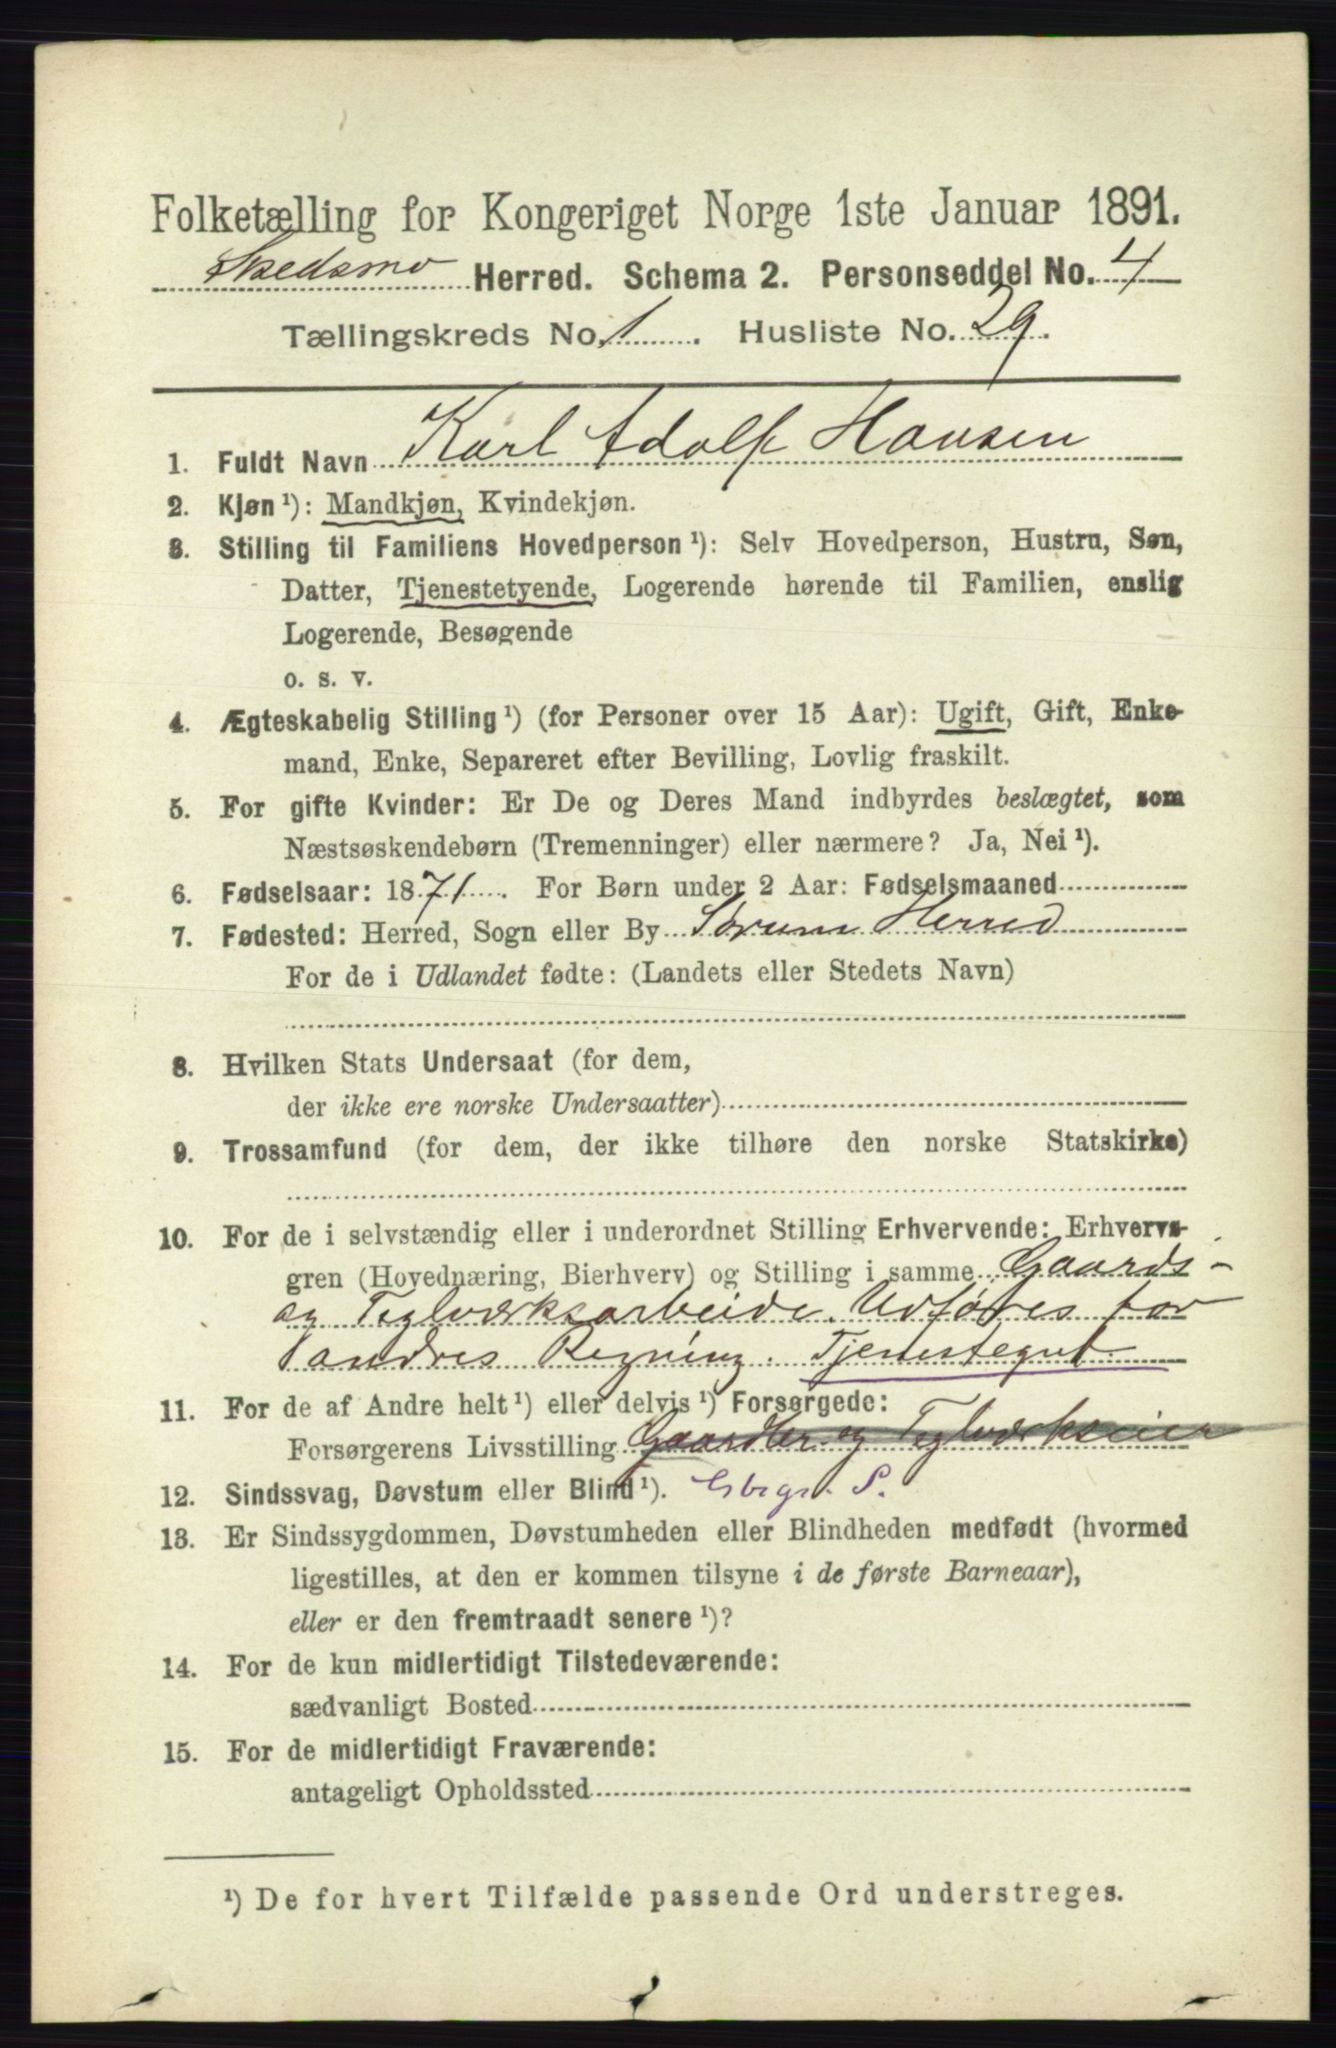 Folketælling for Kongeriget Norge 1ste Januar 1891.
Skedsmo Herred. Schema 2. Personseddel No. 4
Tællingskreds No. 1. Husliste No. 29.
1. Fuldt Navn Karl Adolf Hansen
2. Kjøn ¹): Mandkjøn, Kvindekjøn.
3. Stilling til Familiens Hovedperson ¹): Selv Hovedperson, Hustru, Søn,
Datter, Tjenestetyende, Logerende hørende til Familien, enslig
Logerende, Besøgende
o. s. v.
4. Ægteskabelig Stilling ¹) (for Personer over 15 Aar): Ugift, Gift, Enke-
mand, Enke, Separeret efter Bevilling, Lovlig fraskilt.
5. For gifte Kvinder: Er De og Deres Mand indbyrdes beslægtet, som
Næstsøskendebørn (Tremenninger) eller nærmere? Ja, Nei ¹).
6. Fødselsaar: 1871. For Børn under 2 Aar: Fødselsmaaned
7. Fødested: Herred, Sogn eller By Sørum Herred
For de i Udlandet fødte: (Landets eller Stedets Navn)
8. Hvilken Stats Undersaat (for dem,
der ikke ere norske Undersaatter)
9. Trossamfund (for dem, der ikke tilhøre den norske Statskirke)
10. For de i selvstændig eller i underordnet Stilling Erhvervende: Erhvervs-
gren (Hovednæring, Bierhverv) og Stilling i samme Gaards-
og Teglværksarbeide. Udføres for
andres Regning. Tjenestegut
11. For de af Andre helt ¹) eller delvis ¹) Forsørgede:
Forsørgerens Livsstilling Gaardbr. og Teglværkseier
12. Sindssvag, Døvstum eller Blind ¹). Gbrgr. S.
13. Er Sindssygdommen, Døvstumheden eller Blindheden medfødt (hvormed
ligestilles, at den er kommen tilsyne i de første Barneaar),
eller er den fremtraadt senere ¹)?
14. For de kun midlertidigt Tilstedeværende:
sædvanligt Bosted
15. For de midlertidigt Fraværende:
antageligt Opholdssted
¹) De for hvert Tilfælde passende Ord understreges.